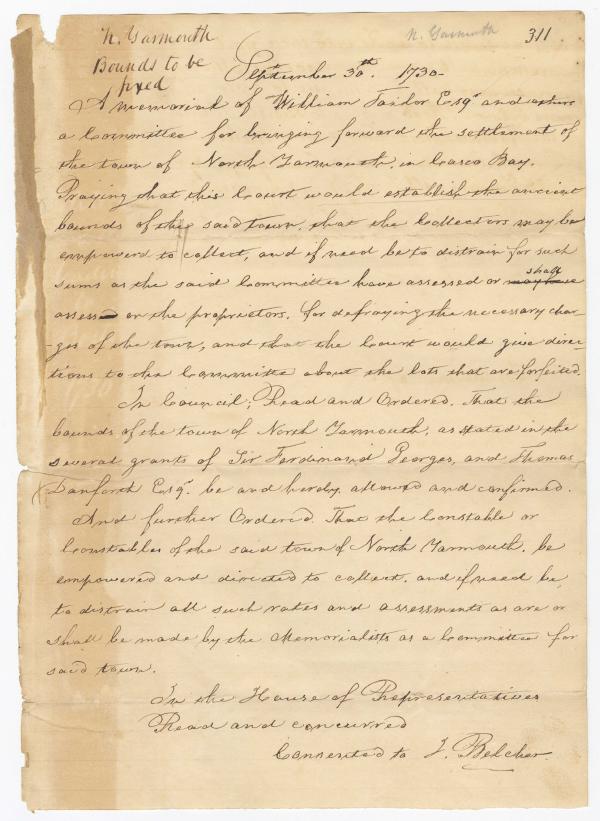 N. Yarmouth
Bounds to be
fixed
N. Yarmouth
311
September 30th. 1730-
A memorial of William Tailor Esqr and others
a Committee for bringing forward the settlement of
the town of North Yarmouth, in Casco Bay.
Praying that this Court would establish the ancient
bounds of the said town, that the Collectors may be
empowerd to collect, and if need be to distrain for such
sums as the said Committee have assessed or may have shall
assess on the proprietors, for defraying the necessary char-
-ges of the town, and that the Court would give direc-
tions to the Committe about the lots that are forfeited.
In Council; Read and Ordered. That the
bounds of the town of North Yarmouth, as stated in the
several grants of Sir Ferdinand Georges, and Thomas
Danforth Esqr. be and hereby allowed and confirmed.
And further Ordered. That the Constable or
Constables of the said town of North Yarmouth. be
empowered and directed to collect. and if need be,
to distrain all such rates and assessments as are or
shall be made by the Memorialists as a Committee for
said town.
In the House of Representatives
Read and concurred
Consented to J. Belcher.